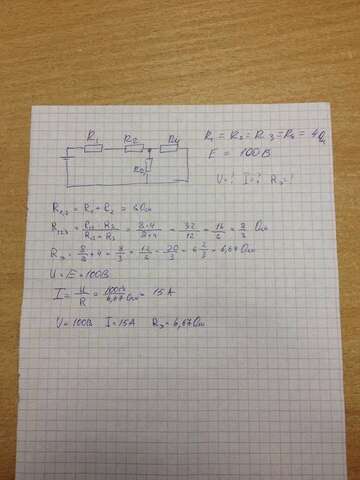 R1 R2 R4 R1 = R2 = R3 = R4 = 4Ω
R3 E = 100В
U-? I=? Rэ=?
R1,2 = R1 + R2 = 8Ом
R123 = R12 · R3 / R12 + R3 = 8·4 / 8+4 = 32/12 = 16/6 = 8/3 Ом
Rэ = 8/3 + 4 = 8/3 + 12/3 = 20/3 = 6 2/3 = 6,67Ом
U = E = 100В
I = U/R = 100В / 6,67Ом = 15 А
U = 100В I = 15А Rэ = 6,67Ом